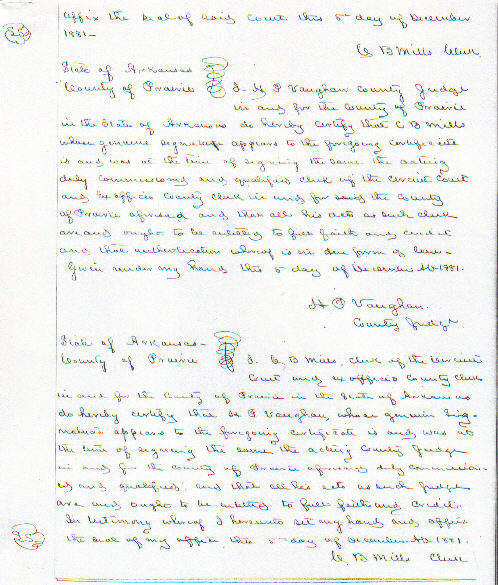 affix the seal of said Court this 5th day of December
1881-
C B Mills Clerk
State of Arkansas
County of Prairie I. H P Vaughan County Judge
in and for the County of Prairie
in the State of Arkansas do hereby certify that C B Mills
whose genuine signature appears to the foregoing certificate
is and was at the time of signing the same the acting
duly commissioned and qualified clerk of the Circuit Court
and Ex officio County Clerk in and for said the County
of Prairie aforesaid and that all his acts as such clerk
are and ought to be entitled to full faith and credit
and that authentication whereof is in due form of law-
Given under my hand this 5 day of December AD 1881.
H P Vaughan.
County Judge
State of Arkansas-
County of Prairie I. C. B Mills, clerk of the Circuit
Court and ex officio County clerk
in and for the County of Prairie in the State of Arkansas
do hereby certify that H P Vaughan, whose genuine Sig-
nature appears to the foregoing certificate is and was at
the time of signing the same the acting County Judge
in and for the County of Prairie aforesaid duly commission-
ed and qualified; and that all his acts as such Judge
are and ought to be entitled to full faith and credit.
In testimony whereof I hereunto set my hand and affix
the seal of my office this 5- day of December AD 1881.
C B Mills Clerk